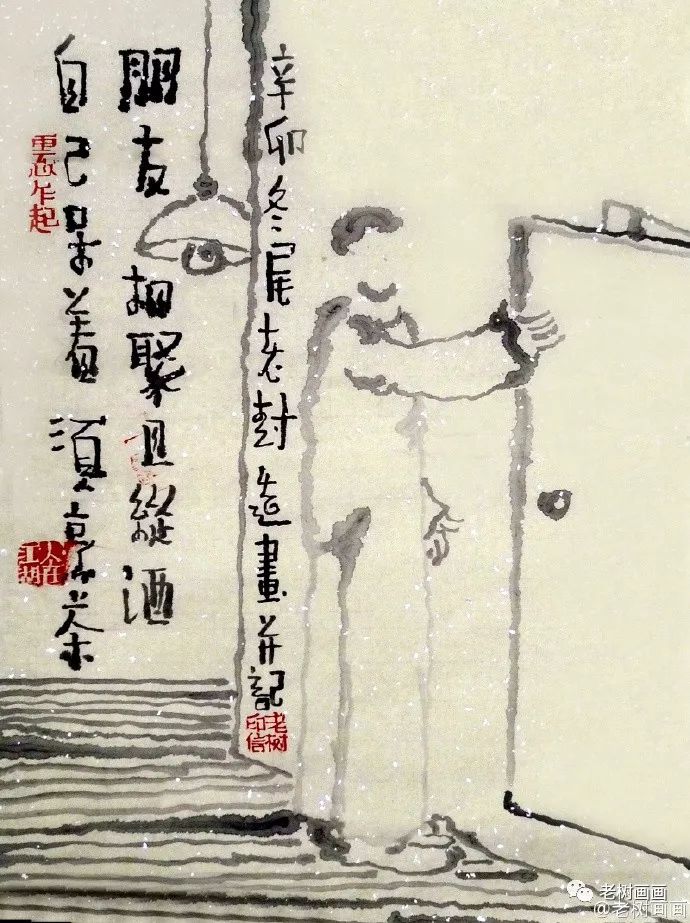 朋友相聚且縱酒
自己呆着須烹茶
辛卯冬尾老封造畫并記
老樹印信
人在江湖
老树画画
@老树画画